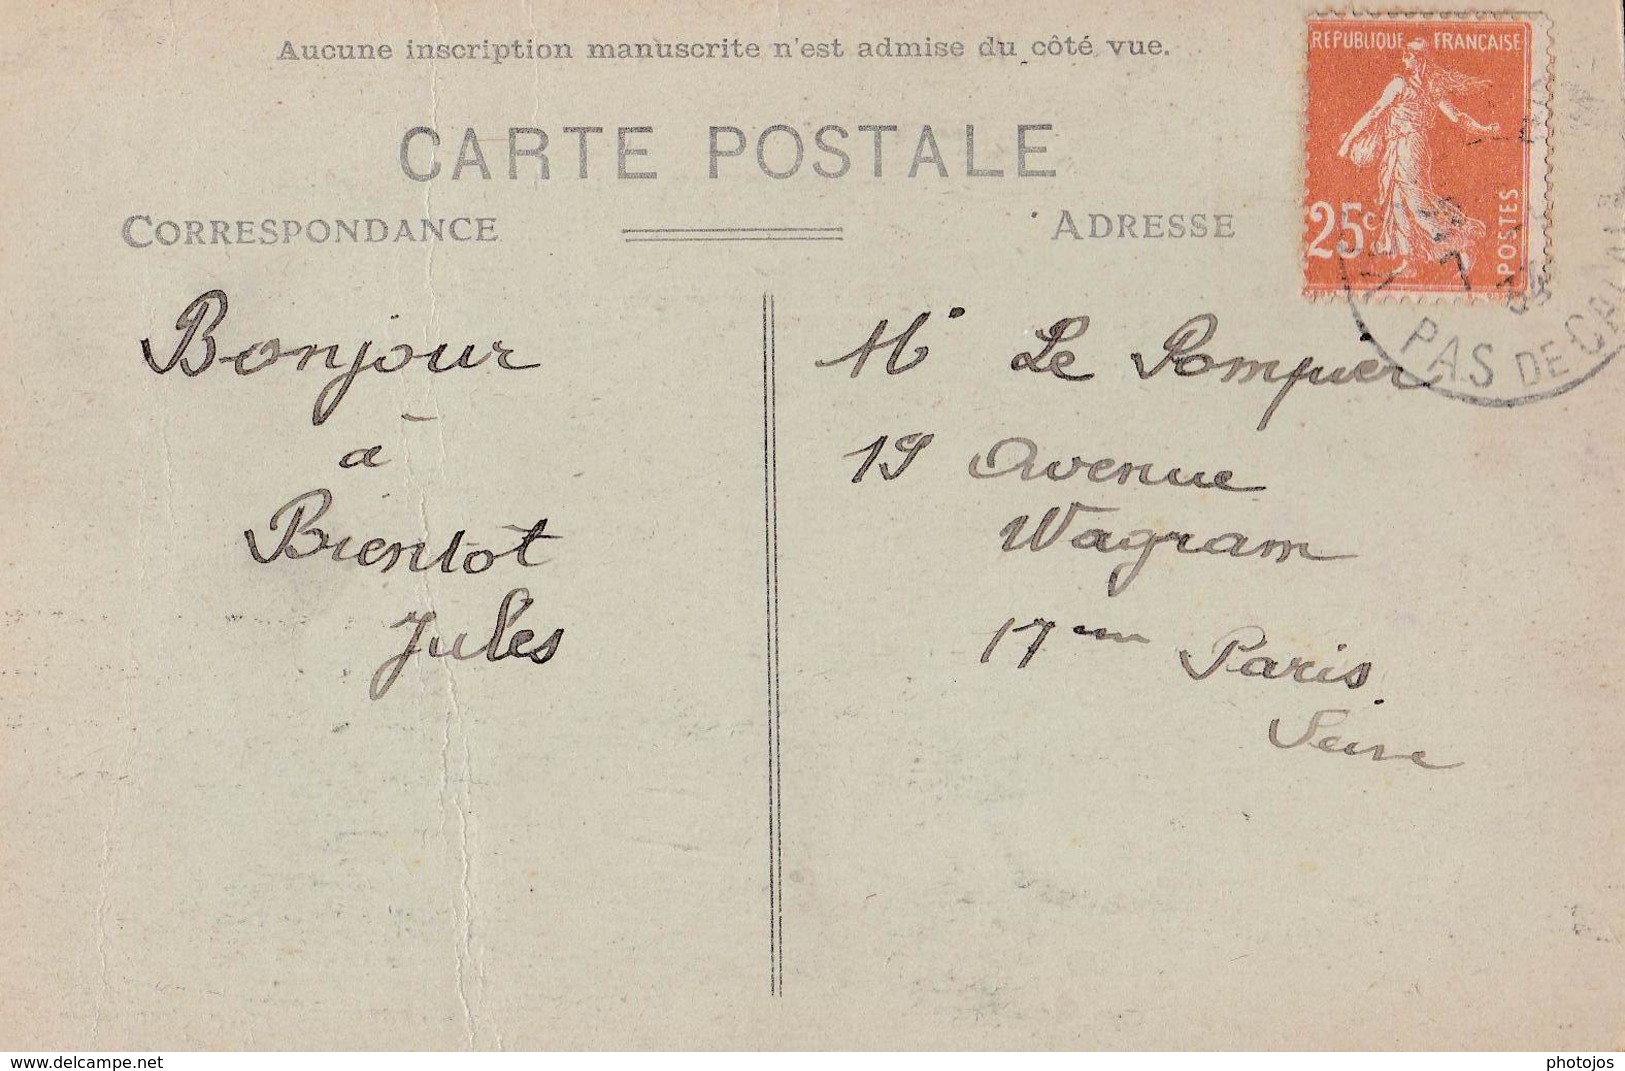 Aucune inscription manuscrite n'est admise du côté vue.
REPUBLIQUE FRANÇAISE
25c
POSTES
CARTE POSTALE
CORRESPONDANCE
ADRESSE
PAS DE CALAIS
Bonjour
à
Bientôt
Jules
Mr Le Pompier
19 Avenue
Wagram
17eme Paris
Seine
www.delcampe.net
photojos